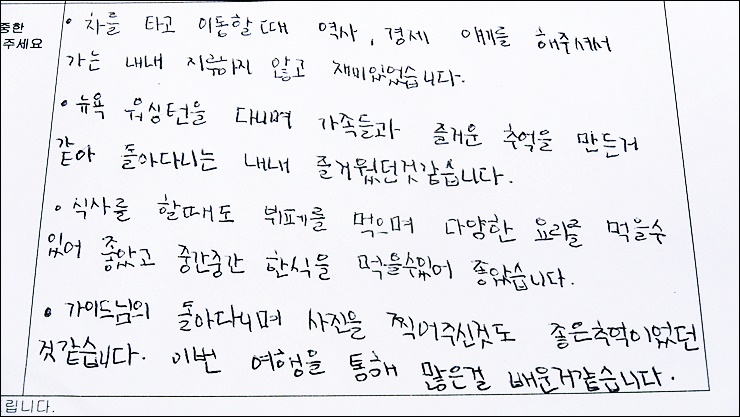 중한
주세요
• 차를 타고 이동할때 역사, 경제 얘기를 해주셔서
가는 내내 지루하지 않고 재미있었습니다.
• 뉴욕 워싱턴을 다니며 가족들과 즐거운 추억을 만든거
같아 돌아다니는 내내 즐거웠던것같습니다.
• 식사를 할때도 뷔페를 먹으며 다양한 요리를 먹을수
있어 좋았고 중간중간 한식을 먹을수있어 좋았습니다.
• 가이드님의 돌아다니며 사진을 찍어주신것도 좋은추억이었던
것같습니다. 이번 여행을 통해 많은걸 배운거같습니다.
립니다.